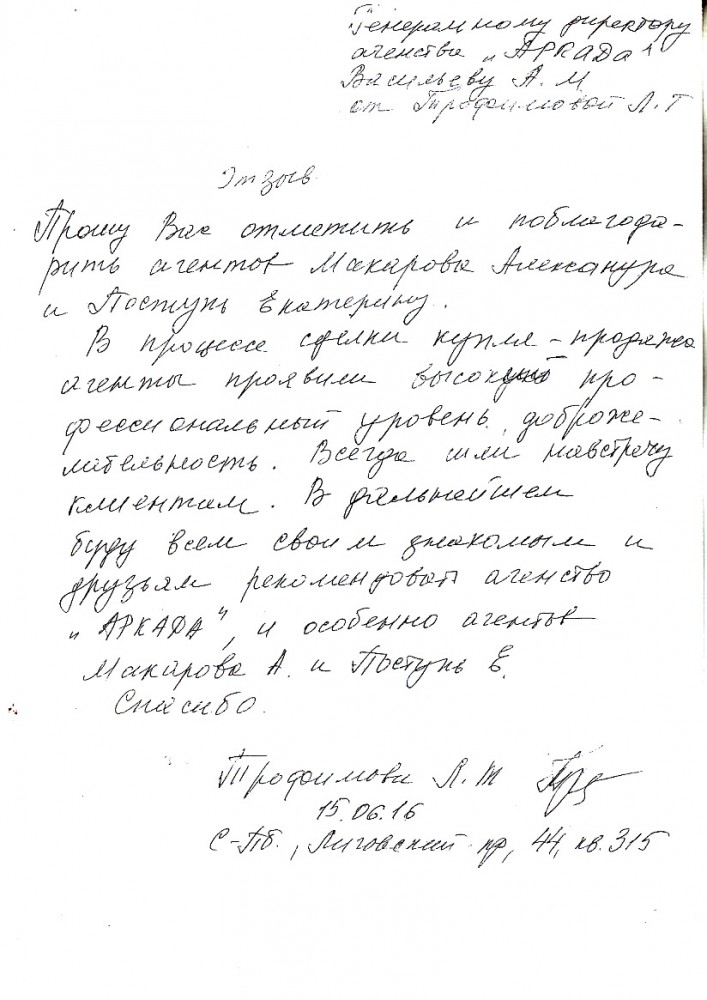 Генеральному директору
агенства „АРКАДА"
Васильеву А. М
от Трофимовой Л. Т
Отзыв
Прошу Вас отметить и поблагода-
рить агентов Макарова Александра
и Поступь Екатерину.
В процессе сделки купля-продажа
агенты проявили высокий про-
фессиональный уровень, доброже-
лательность. Всегда шли навстречу
клиентам. В дальнейшем
буду всем своим знакомым и
друзьям рекомендовать агенство
„АРКАДА", и особенно агентов
Макарова А. и Поступь Е.
Спасибо.
Трофимова Л. Т
15.06.16
С-Пб., Лиговский пр, 44, кв. 315